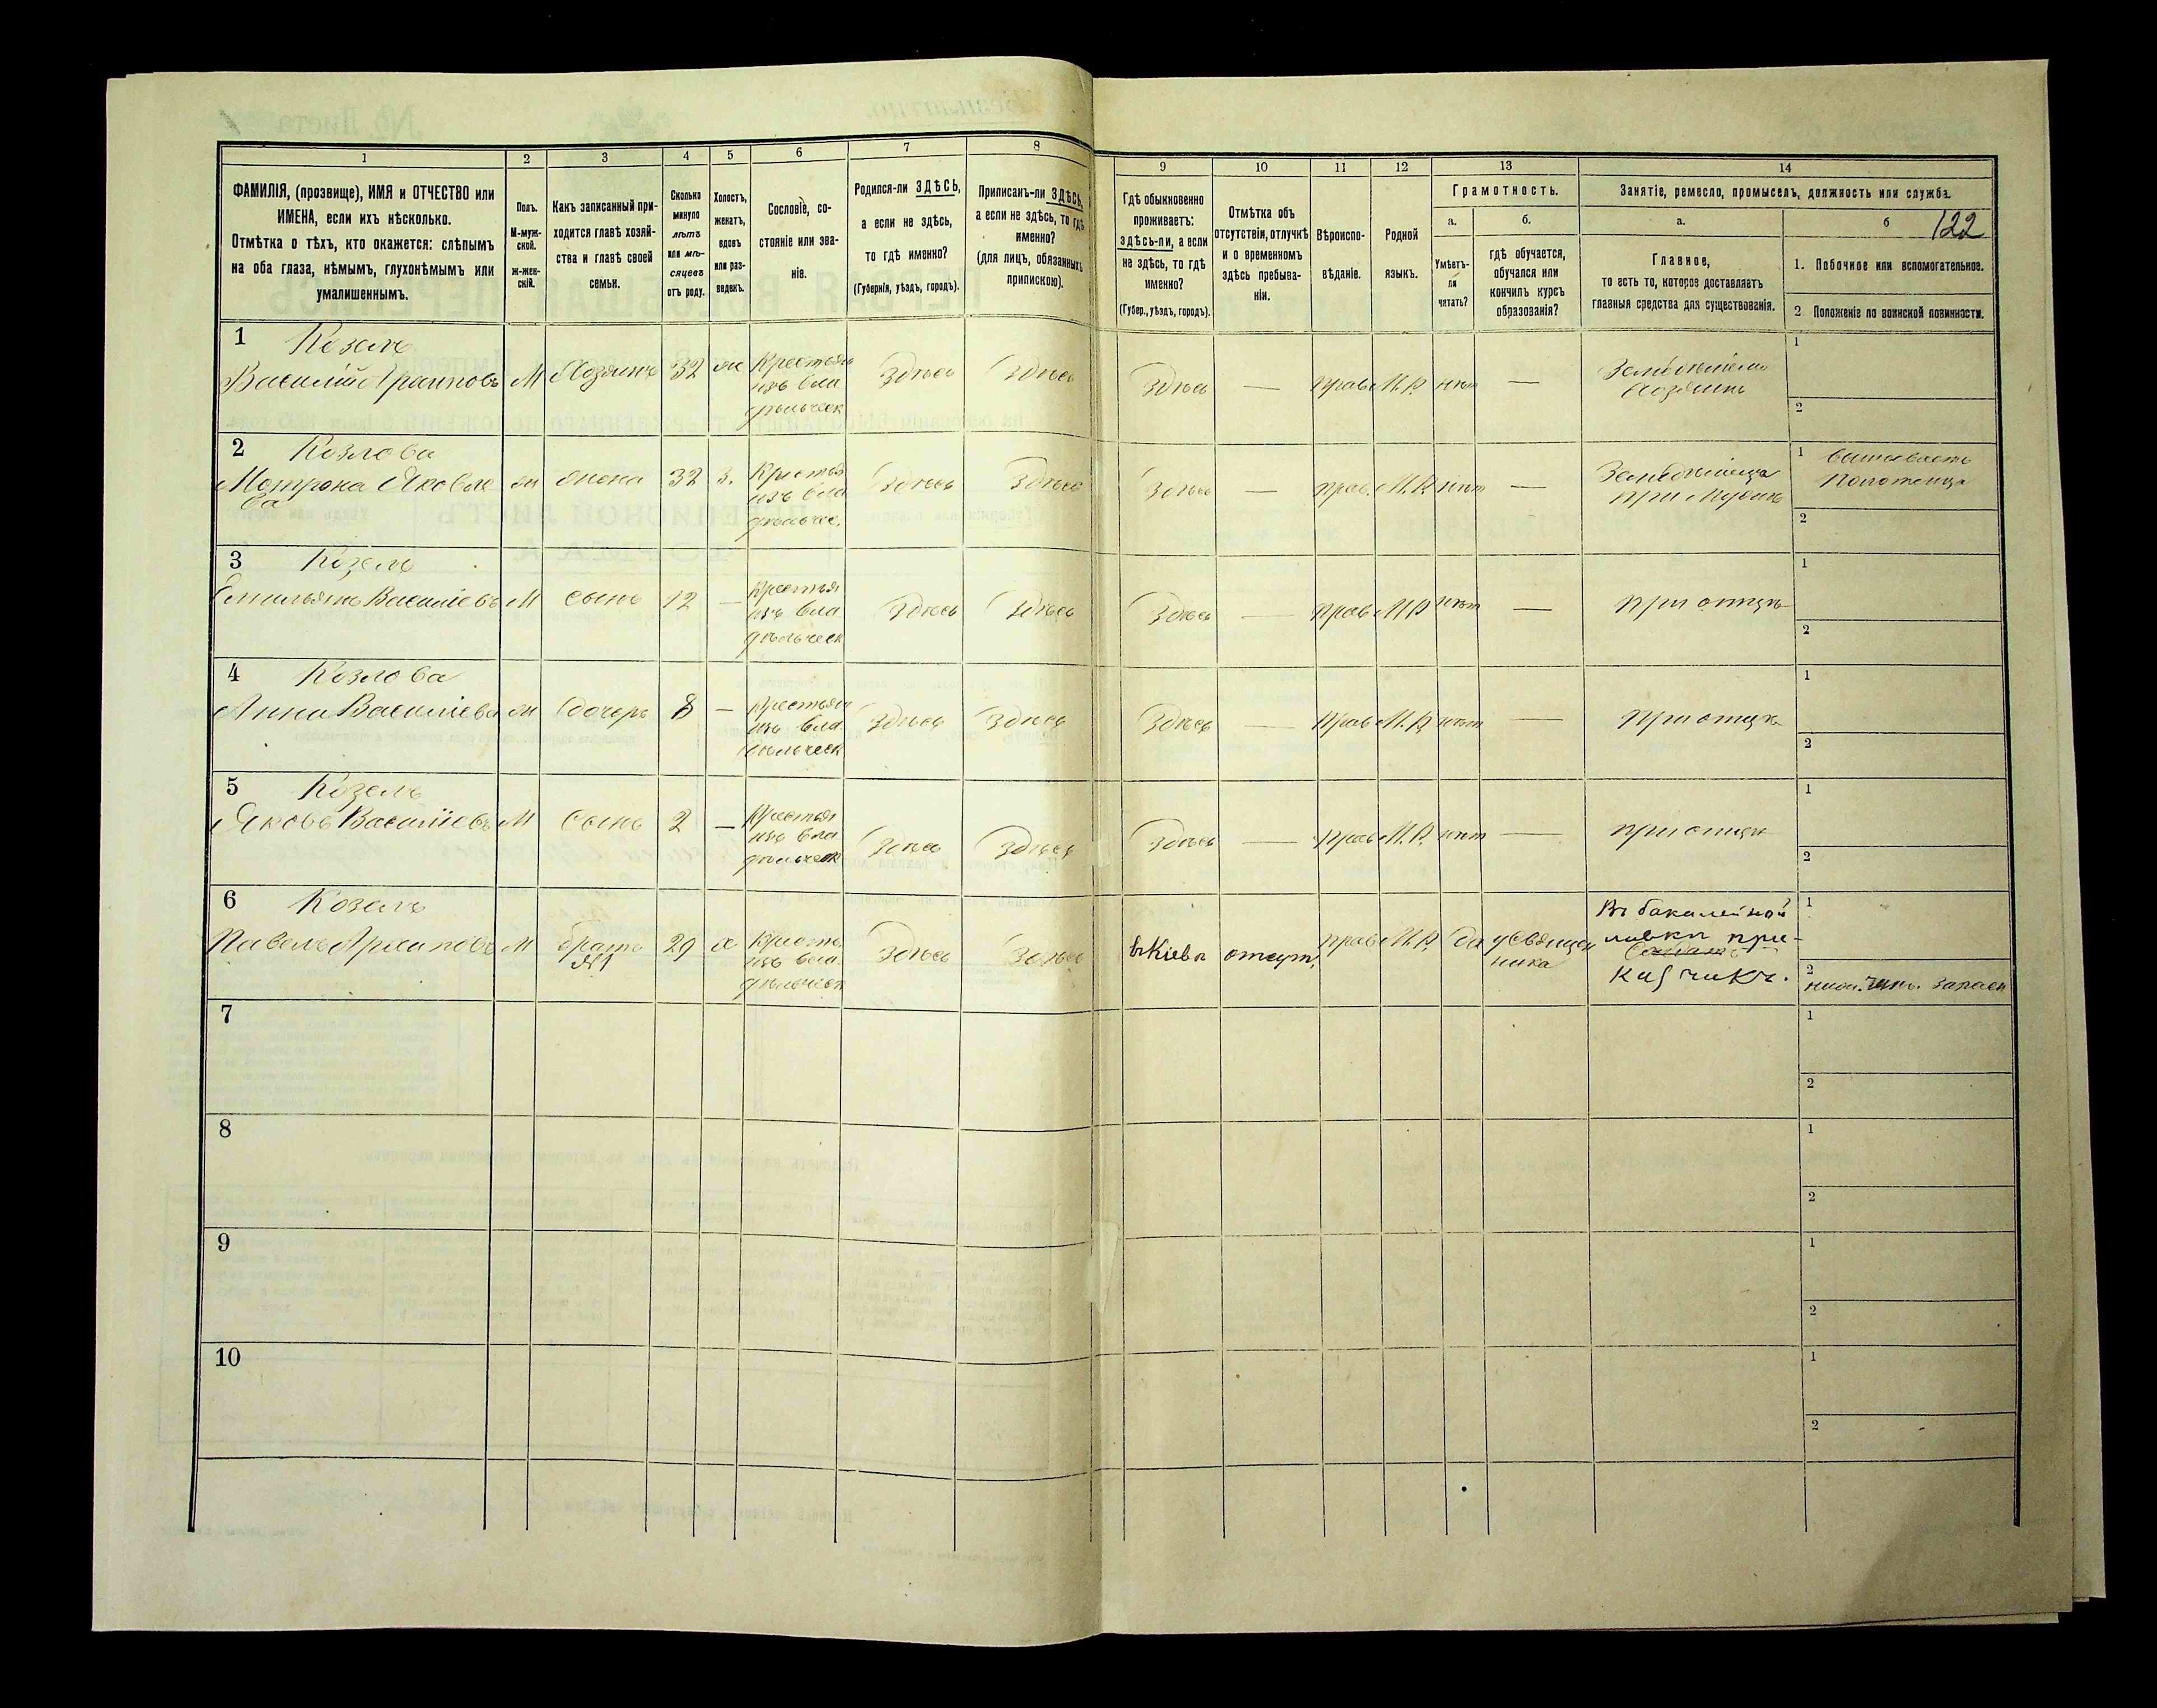 122
1 2 3 4 5 6 7 8 9 10 11 12 13 14
ФАМИЛІЯ, (прозвище), ИМЯ и ОТЧЕСТВО или
ИМЕНА, если ихъ нѣсколько.
Отмѣтка о тѣхъ, кто окажется: слѣпымъ
на оба глаза, нѣмымъ, глухонѣмымъ или
умалишеннымъ.
Полъ.
М-муж-
ской.
ж-жен-
скій.
Какъ записанный при-
ходится главѣ хозяй-
ства и главѣ своей
семьи.
Сколько
минуло
лѣтъ
или мѣ-
сяцевъ
отъ роду.
Холостъ,
женатъ,
вдовъ
или раз-
веденъ.
Сословіе, со-
стояніе или зва-
ніе.
Родился-ли ЗДѢСЬ,
а если не здѣсь,
то гдѣ именно?
(Губернія, уѣздъ, городъ).
Приписанъ-ли ЗДѢСЬ,
а если не здѣсь, то гдѣ
именно?
(для лицъ, обязанныхъ
припискою).
Гдѣ обыкновенно
проживаетъ:
здѣсь-ли, а если
не здѣсь, то гдѣ
именно?
(Губер., уѣздъ, городъ).
Отмѣтка объ
отсутствіи, отлучкѣ
и о временномъ
здѣсь пребыва-
ніи.
Вѣроиспо-
вѣданіе.
Родной
языкъ.
Грамотность.
а.
Умѣетъ-
ли
читать?
б.
гдѣ обучается,
обучался или
кончилъ курсъ
образованія?
Занятіе, ремесло, промыселъ, должность или служба.
а.
Главное,
то есть то, которое доставляетъ
главныя средства для существованія.
б
1. Побочное или вспомогательное.
2 Положеніе по воинской повинности.
1 Козелъ
Василій Архиповъ М Хозяинъ 32 ж Крестьян
изъ вла
дѣльческ Здѣсь Здѣсь Здѣсь — Прав М.Р. нѣт —
Хозяинъ
1
2
2 Козлова
Мотрона Яковле
ва ж жена 32 з. Крестья
изъ вла
дѣльчес. Здѣсь Здѣсь Здѣсь — Прав. М.Р. нѣт —
при мужѣ
1
2
3 Козелъ
Емильянъ Василіевъ М Сынъ 12 — Крестья
изъ вла
дѣльческ Здѣсь Здѣсь Здѣсь — Прав М.Р нѣт — при отцѣ
1
2
4 Козлова
Анна Василіева ж дочерь 8 — Крестьян
изъ вла
дѣльческ Здѣсь Здѣсь Здѣсь — Прав М.Р. нѣт — при отцѣ
1
2
5 Козелъ
Яковъ Василіевъ М Сынъ 2 — Крестья
изъ вла
дѣльческ Здѣсь Здѣсь Здѣсь — Прав М.Р. нѣт — при отцѣ
1
2
6 Козелъ
Павелъ Архиповъ М братъ
№1 29 х Крестья
изъ вла
дѣльческ Здѣсь Здѣсь въ Кіевѣ отсут. Прав М.Р. да у Священ
ника
Въ бакалейной
лавкѣ при-
кащикъ.
1
2
нижн. чинъ. запасн
7
1
2
8
1
2
9
1
2
10
1
2